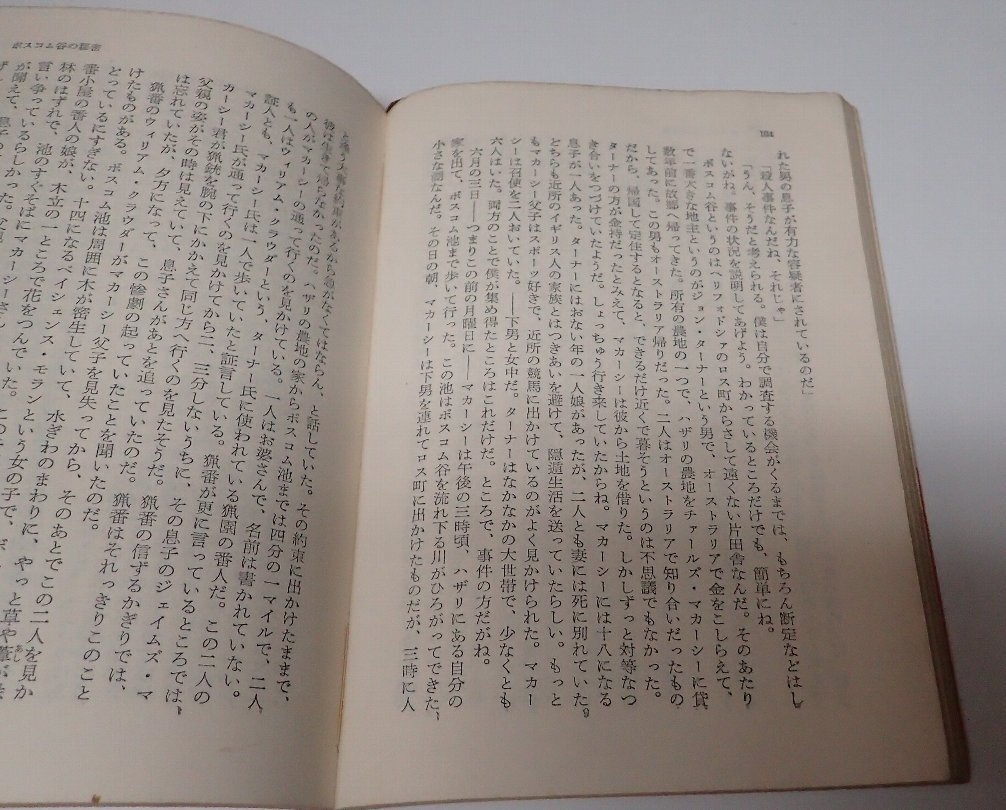 104
れた男の息子が有力な容疑者にされているのだ」
「殺人事件なんだね、それじゃ」
「うん、そうだと考えられる。僕は自分で調査する機会がくるまでは、もちろん断定などはし
ないがね。事件の状況を説明してあげよう。わかっているところだけでも、簡単にね。
ボスコム谷というのはヘリフォドシァのロス町からさして遠くない片田舎なんだ。そのあたり
で一番大きな地主というのがジョン・ターナーという男で、オーストラリアで金をこしらえて、
数年前に故郷へ帰ってきた。所有の農地の一つで、ハザリの農地をチャールズ・マカーシーに貸
してあった。この男もオーストラリア帰りだった。二人はオーストラリアで知り合いだったもの
だから、帰国して定住するとなると、できるだけ近くで暮そうというのは不思議でもなかった。
ターナーの方が金持だったとみえて、マカーシーは彼から土地を借りた。しかしずっと対等なつ
き合いをつづけていたようだ。しょっちゅう行き来していたからね。マカーシーには十八になる
息子が一人あった。ターナーにはおない年の一人娘があったが、二人とも妻には死に別れていた。
どちらも近所のイギリス人の家族とはつきあいを避けて、隠遁生活を送っていたらしい。もっと
もマカーシー父子はスポーツ好きで、近所の競馬に出かけているのがよく見かけられた。マカー
シーは召使を二人おいていた。――下男と女中だ。ターナーはなかなかの大世帯で、少なくとも
六人はいた。両方のことで僕が集め得たところはこれだけだ。ところで、事件の方だがね。
六月の三日――つまりこの前の月曜日に――マカーシーは午後の三時頃、ハザリにある自分の
家を出て、ボスコム池まで歩いて行った。この池はボスコム谷を流れ下る川がひろがってできた、
小さな湖なんだ。その日の朝、マカーシーは下男を連れてロス町に出かけたものだが、三時に人
ボスコム谷の秘密
と会う約束があるから急がなくてはならん、と話していた。その約束に出かけたままで、
彼は生きて帰らなかったのだ。ハザリの農地の家からボスコム池までは四分の一マイルで、二人
の人がマカーシーの通って行くのを見かけている。一人はお婆さんで、名前は書かれていない。
も一人はウィリアム・クラウダーという、ターナー氏に使われている猟園の番人だ。この二人の
証人とも、マカーシー氏は一人で歩いていたと証言している。猟番が更に言っているところでは、
マカーシー氏が通って行くのを見かけてから二、三分しないうちに、その息子のジェイムズ・マ
カーシー君が猟銃を腕の下にかかえて同じ方へ行くのを見たそうだ。猟番の信ずるかぎりでは、
父親の姿がその時は見えていて、息子さんがあとを追っていたのだ。猟番はそれっきりこのこと
は忘れていたが、夕方になって、この惨劇の起っていたことを聞いたのだ。
猟番のウィリアム・クラウダーがマカーシー父子を見失ってから、そのあとでこの二人を見か
けたものがある。ボスコム池は周囲に木が密生していて、水ぎわのまわりに、やっと草や葦が
とっているにすぎない。十四になるペイシェンス・モランという女の子で、ボ
番小屋の番人の娘が、木立の一ところで花をつんでいた。
林のはずれで、池のすぐそばにマカーシーさん
言い争っているらしかった。
が聞えて、息子